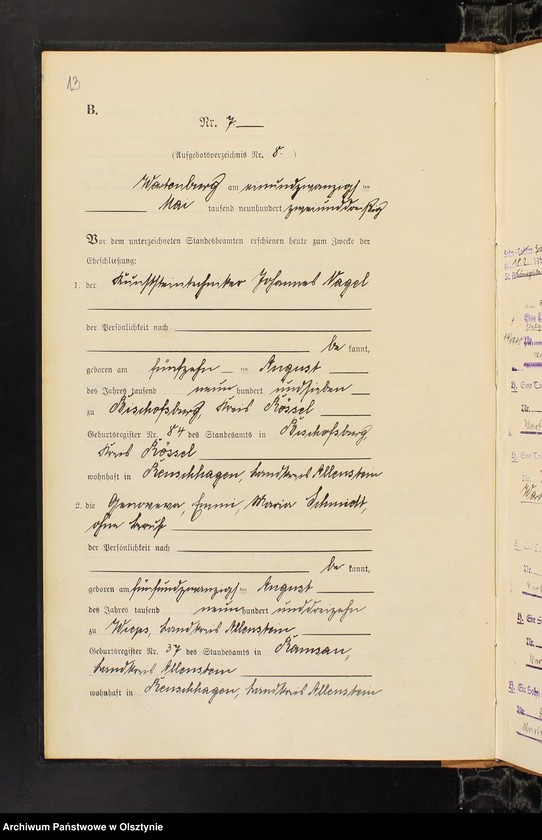 13
B.
Nr. 7
(Aufgebotsverzeichnis Nr. 8. )
Wartenburg am einundzwanzigsten
Mai tausend neunhundert zweiunddreißig
Vor dem unterzeichneten Standesbeamten erschienen heute zum Zwecke der
Eheschließung:
1. der Kunststeintechniker Johannes Nagel
der Persönlichkeit nach
be kannt,
geboren am fünfzehn ten August
des Jahres tausend neun hundert undsieben
zu Bischofsburg Kreis Rössel
Geburtsregister Nr. 84 des Standesamts in Bischofsburg
Kreis Rössel
wohnhaft in Renschhagen, Landkreis Allenstein
2. die Genoveva, Emmi, Maria Schmidt,
ohne Beruf
der Persönlichkeit nach
be kannt,
geboren am fünfundzwanzigsten August
des Jahres tausend neun hundert unddreizehn
zu Wieps, Landkreis Allenstein
Geburtsregister Nr. 37 des Standesamts in Ramsau,
Landkreis Allenstein
wohnhaft in Renschhagen, Landkreis Allenstein
Archiwum Państwowe w Olsztynie